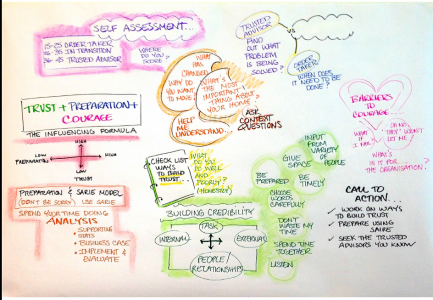 SELF ASSESSMENT...
15-25 ORDER TAKER
IN TRANSITION
TRUSTED ADVISOR
WHERE
DO YOU
SCORE
TRUST + PREPARATION +
COURAGE
THE INFLUENCING FORMULA
HIGH
LOW
PREPARATION
HIGH
LOW
TRUST
PREPARATION & SAIRE MODEL
(DON'T BE SORRY) USE SAIRE
SPEND YOUR TIME DOING
ANALYSIS
SUPPORTING
STATS
BUSINESS CASE
IMPLEMENT &
EVALUATE
WHAT
HAS
CHANGED
WHY DO YOU
WANT TO MOVE
WHAT'S THE
MOST
IMPORTANT
THING ABOUT
YOUR HOME?
HELP
ME
UNDERSTAND...
ASK
CONTEXT
QUESTIONS
TRUSTED
ADVISOR
FIND
OUT WHAT
PROBLEM
IS BEING
SOLVED?
ORDER
TAKER
WHEN DOES
IT NEED TO BE
DONE?
CHECK LIST
WAYS
TO BUILD
TRUST...
WHAT
DO YOU
DO WELL
AND
POORLY?
(HONESTLY)
BUILDING CREDIBILITY
TASK
INTERNAL
EXTERNAL
PEOPLE/
RELATIONSHIPS
INPUT
FROM
VARIETY
OF
PEOPLE
GIVE
SPACE
BE
PREPARED
BE
TIMELY
CHOOSE
WORDS
CAREFULLY
DON'T
WASTE MY
TIME
SPEND TIME
TOGETHER
LISTEN
BARRIERS
TO
COURAGE
WHAT
IF
WHAT'S
IN IT FOR
THE
ORGANISATION?
CALL TO
ACTION...
✓ WORK ON WAYS
TO BUILD TRUST
✓ PREPARE USING
SAIRE
✓ SEEK THE TRUSTED
ADVISORS YOU KNOW